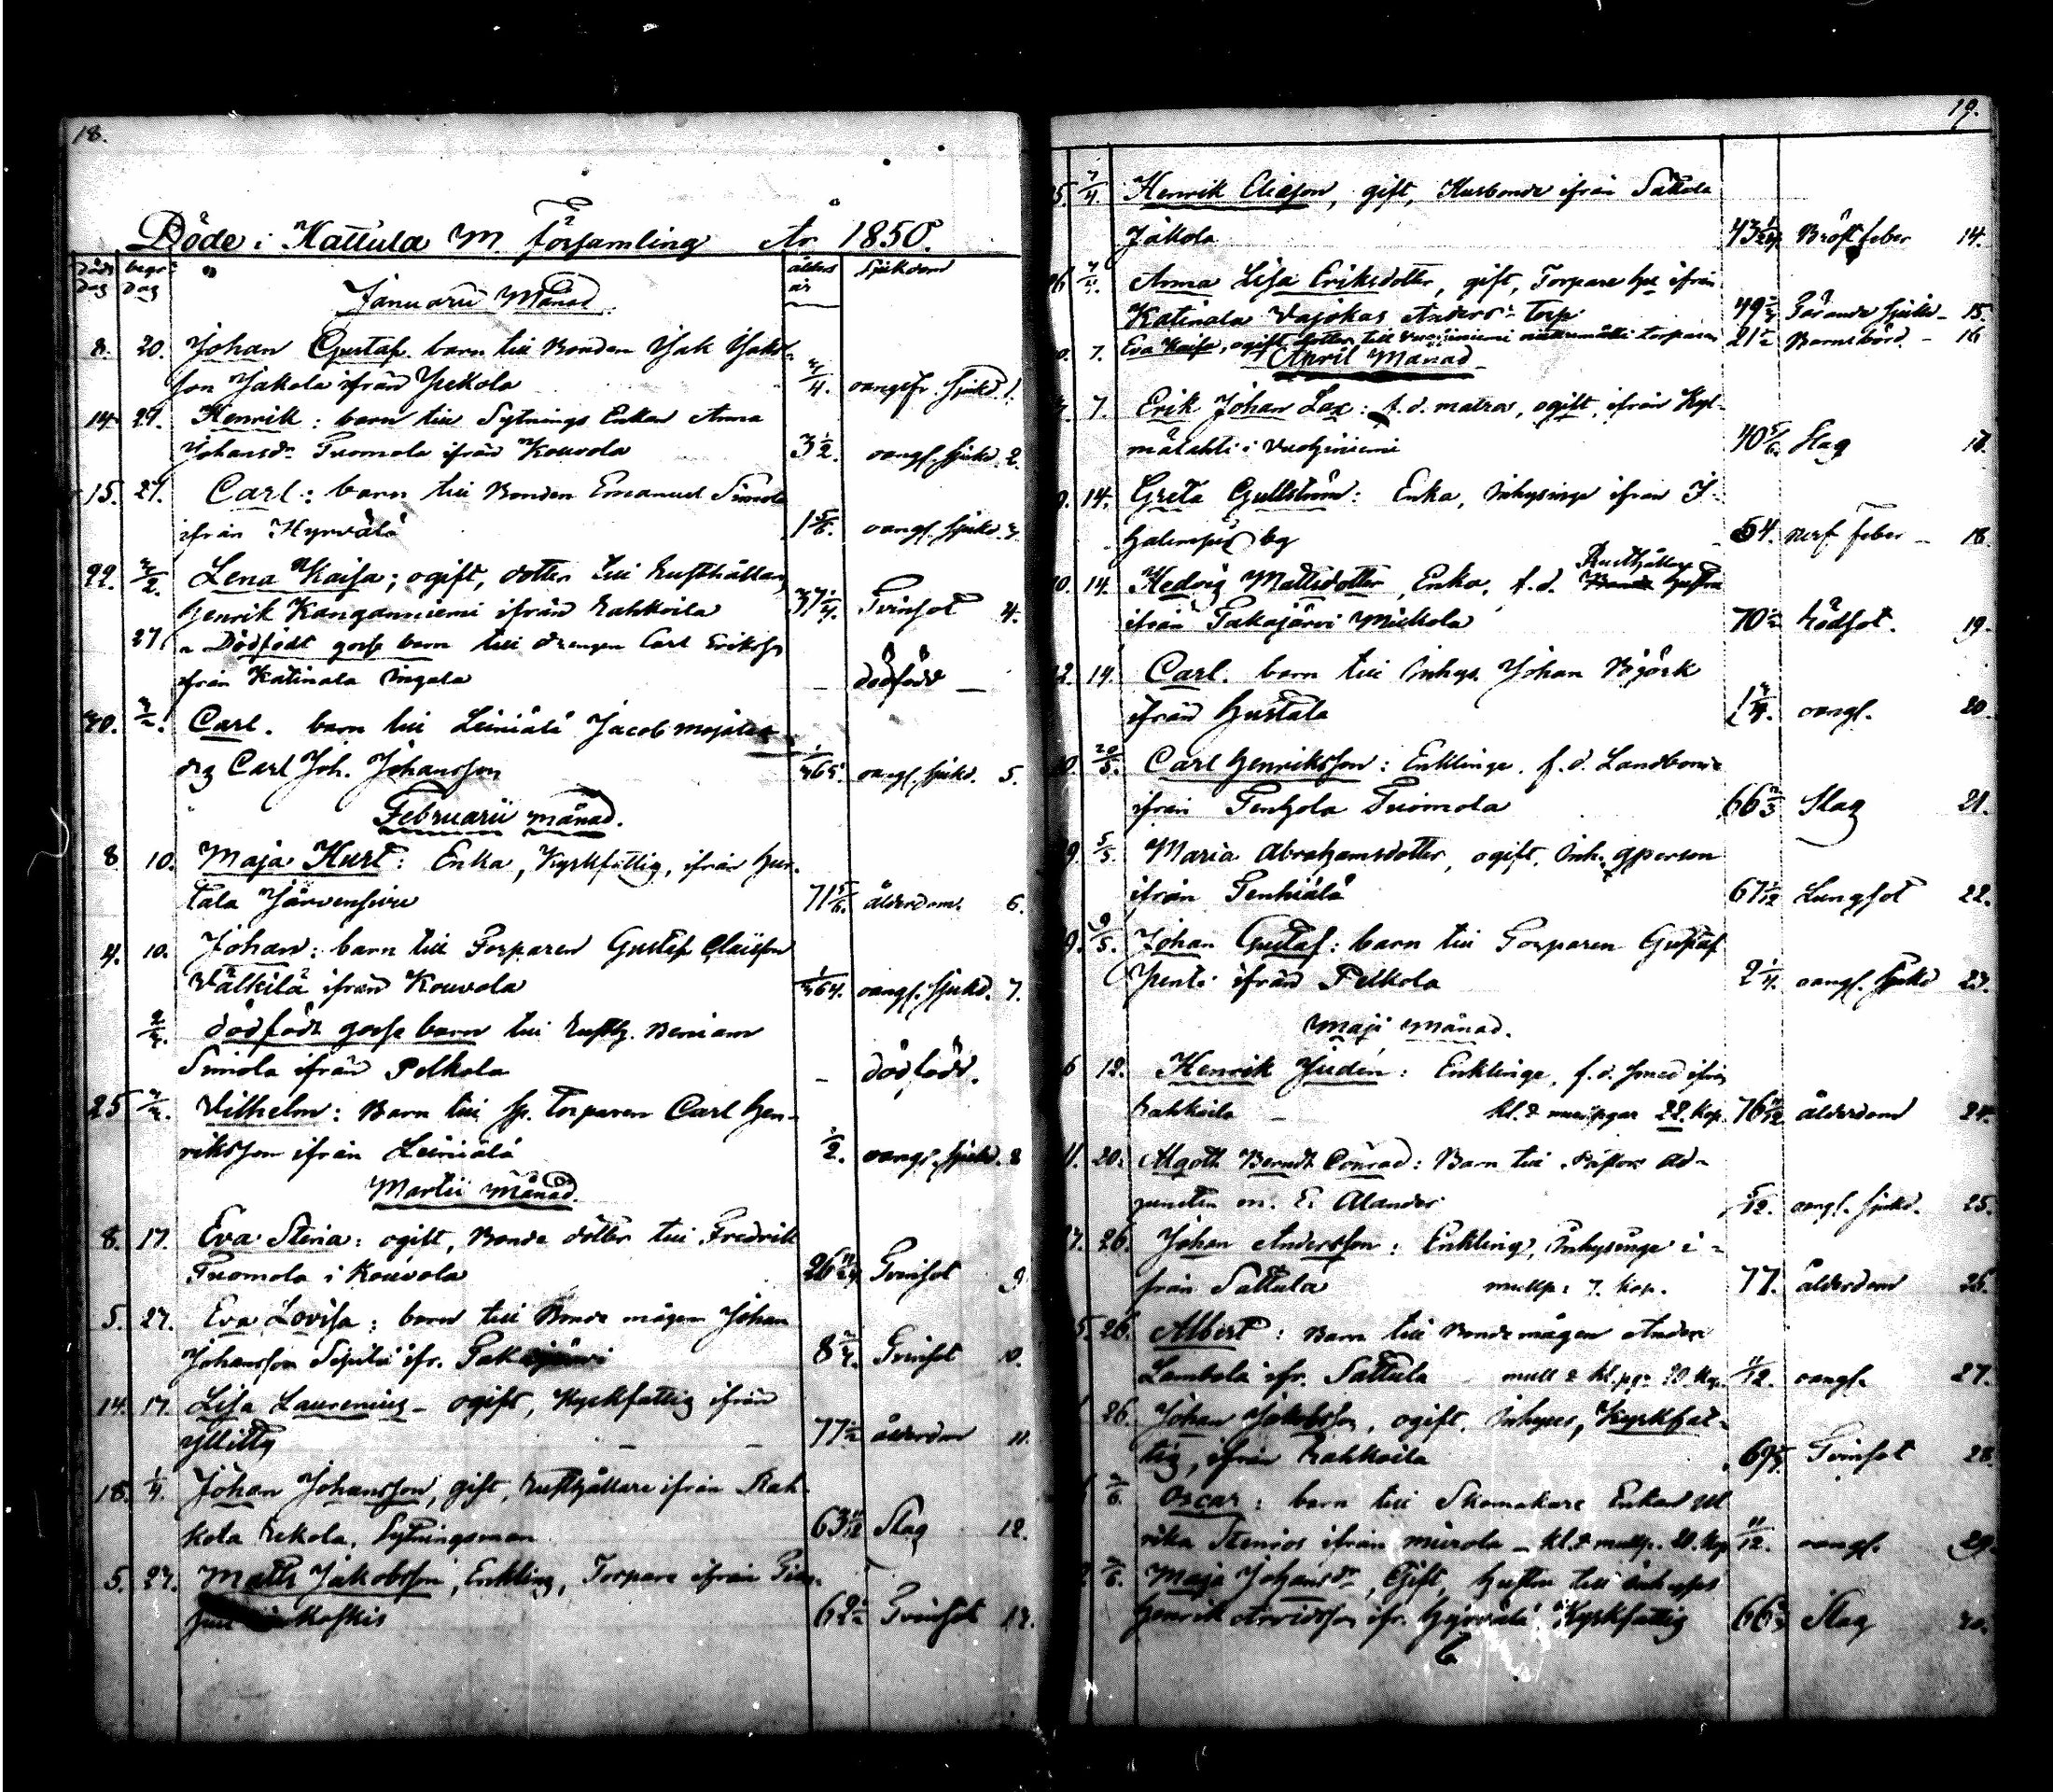 18.
Döde i Hattula M. Församling År 1850.
Döds Dag begr. Dag ålders år Sjukdom
Januarii Månad
8. 20. Johan Gustaf. barn till Bonden Isak Isaks-
son Jakola ifrån Pekola 3/4. oangifv. sjukd. 1.
14. 27. Henrik: barn till Sytnings Enkan Anna
Johansdr Tuomola ifrån Kouvola 3 1/2. oangf. sjukd. 2.
15. 27. Carl: barn till Bonden Emanuel Simola
ifrån Hyrvälä 1 5/6. oangf. sjukd. 3.
22. 3/2. Lena Kaisa; ogift, dotter till Rusthållar
Henrik Kanganniemi ifrån Rahkoila 37 1/4. Tvinsot 4.
27 Dödfödt gosse barn till drengen Carl Eriksson
ifrån Katinala Ingala – dödfödd –
30. 3/2. Carl. barn till Leiniälä Jacob
drg Carl Joh. Johansson 1/365. oangf. sjukd. 5.
Februarii månad.
8 10. Maja Kurt: Enka, Kyrkfattig, ifrån Hur-
tala Järvensivu 71 5/6. ålderdom. 6.
4. 10. Johan: barn till Torparen Gustaf Eliasson
Välkilä ifrån Kouvola 1/364. oangf. sjukd. 7.
dödfödt gosse barn till Rusth. Beniam
Simola ifrån Pelkola – dödfödd.
25 3/3. Vilhelm: Barn till Sp. Torparen Carl Hen-
riksson ifrån Leiniälä 1/2. oangf. sjukd. 8
Martii Månad.
8. 17. Eva Stina: ogift, Bonde dotter till Fredrik
Tuomola i Kouvola 26 Tvinsot 9
5. 27. Eva Lovisa: barn till Bonde mågen Johan
Johansson Seppälä ifr. 8 3/4. Tvinsot 10.
14. 17. Lisa Laurenius – ogift, Kyrkfattig ifrån
Yllitty – – 77 1/2 ålderdom 11.
18. 1/4. Johan Johansson, gift, Rusthållare ifrån Rah-
kola Rekola, Sytningsman 63 Slag 12.
5. 27. Matts Jakobsson, Enkling, Torpare ifrån
Koskis 62 1/2 Tvinsot 13.
19.
25. 7/4. Henrik Eliasson, gift, Husbonde ifrån Sattula
Jakola 43 Bröstfeber 14.
26 7/4. Anna Lisa Eriksdotter, gift, Torpare hu ifrån
Katinala Vajokas Anders Torp 49 3/4 Tärande sjukd. 15.
7. Eva Kaisa, ogift dotter till torparen 21 1/2 Barnsbörd – 16
April Månad
7. Erik Johan Lax: f.d. matros, ogift, ifrån Kyl-
mälahti i Vuohiniemi 40 5/6. Slag 17.
14. Greta Gullström: Enka, Inhysinge ifrån I-
halempis by – 54. nerf feber – 18.
10. 14. Hedvig Mattsdotter, Enka, f.d. Rusthållare hustru
ifrån Takajärvi Mickola 70 1/2 Rödsot. 19.
12. 14. Carl. barn till Inhys. Johan Björk
ifrån Hurtala 1 3/4. oangf. 20.
20/5. Carl Henriksson: Enklinge. f.d. Landbonde
ifrån Tenhola Tuomola 66 2/3 Slag 21.
5/5. Maria Abrahamsdotter, ogift, Inh. qperson
ifrån Tenhiälä 67 1/12 Lungsot 22.
9/5. Johan Gustaf: barn till Torparen Gustaf
Penti ifrån Pelkola 2 1/4. oangf. sjukd 23.
Maji Månad.
6 12. Henrik Judén: Enklinge, f.d. smed ifrån
Rahkoila – kl. & mullpgar 22. kop. 76 ålderdom 24.
11. 20. Algoth Berndt Conrad: Barn till Pastors Ad-
juncten m. E. Alander 5/12. oangf. sjukd. 25.
17. 26. Johan Andersson: Enkling, Inhysinge i-
från Sattula mullp: 7. kop. 77. ålderdom 26.
15. 26. Albert: Barn till Bondemågen Anders
Lambola ifr. Sattula mull & kl.pgr 20. kop. 11/12. oangf. 27.
26. Johan Jakobsson, ogift, Inhyses, Kyrkfat-
tig, ifrån Rahkoila 69 Tvinsot 28.
2/6. Oscar: barn till Skomakare Enkan Ul
rika Stenroos ifrån Mierola – kl. & mullp. 20. kop 11/12. oangf. 29.
2/6. Maja Johansdr, Gift, hustru till Inhyses
Henrik Arvidsson ifr. Hyrvälä Kyrkfattig 66 2/3 Slag 30.